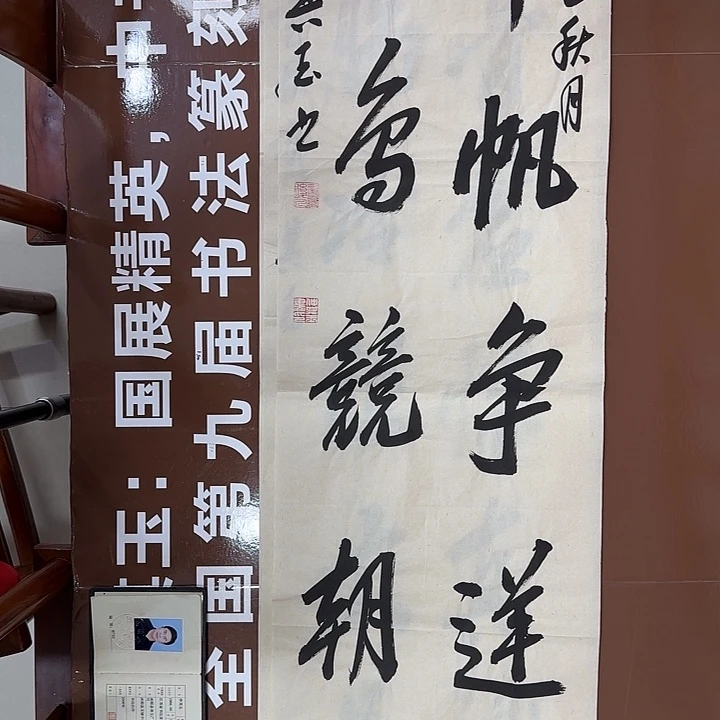 秋月
帆争送
鸟競朝
玉书
玉：国展精英，中
全国第九届书法篆刻